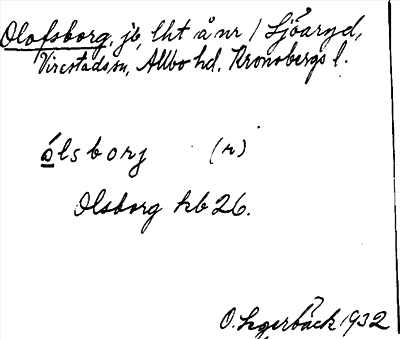 Olofsborg, jb, lht å nr 1 Sjöaryd,
Virestads sn, Allbo hd. Kronobergs l.
ólsborj (n)
Olsborg kb 26.
1932